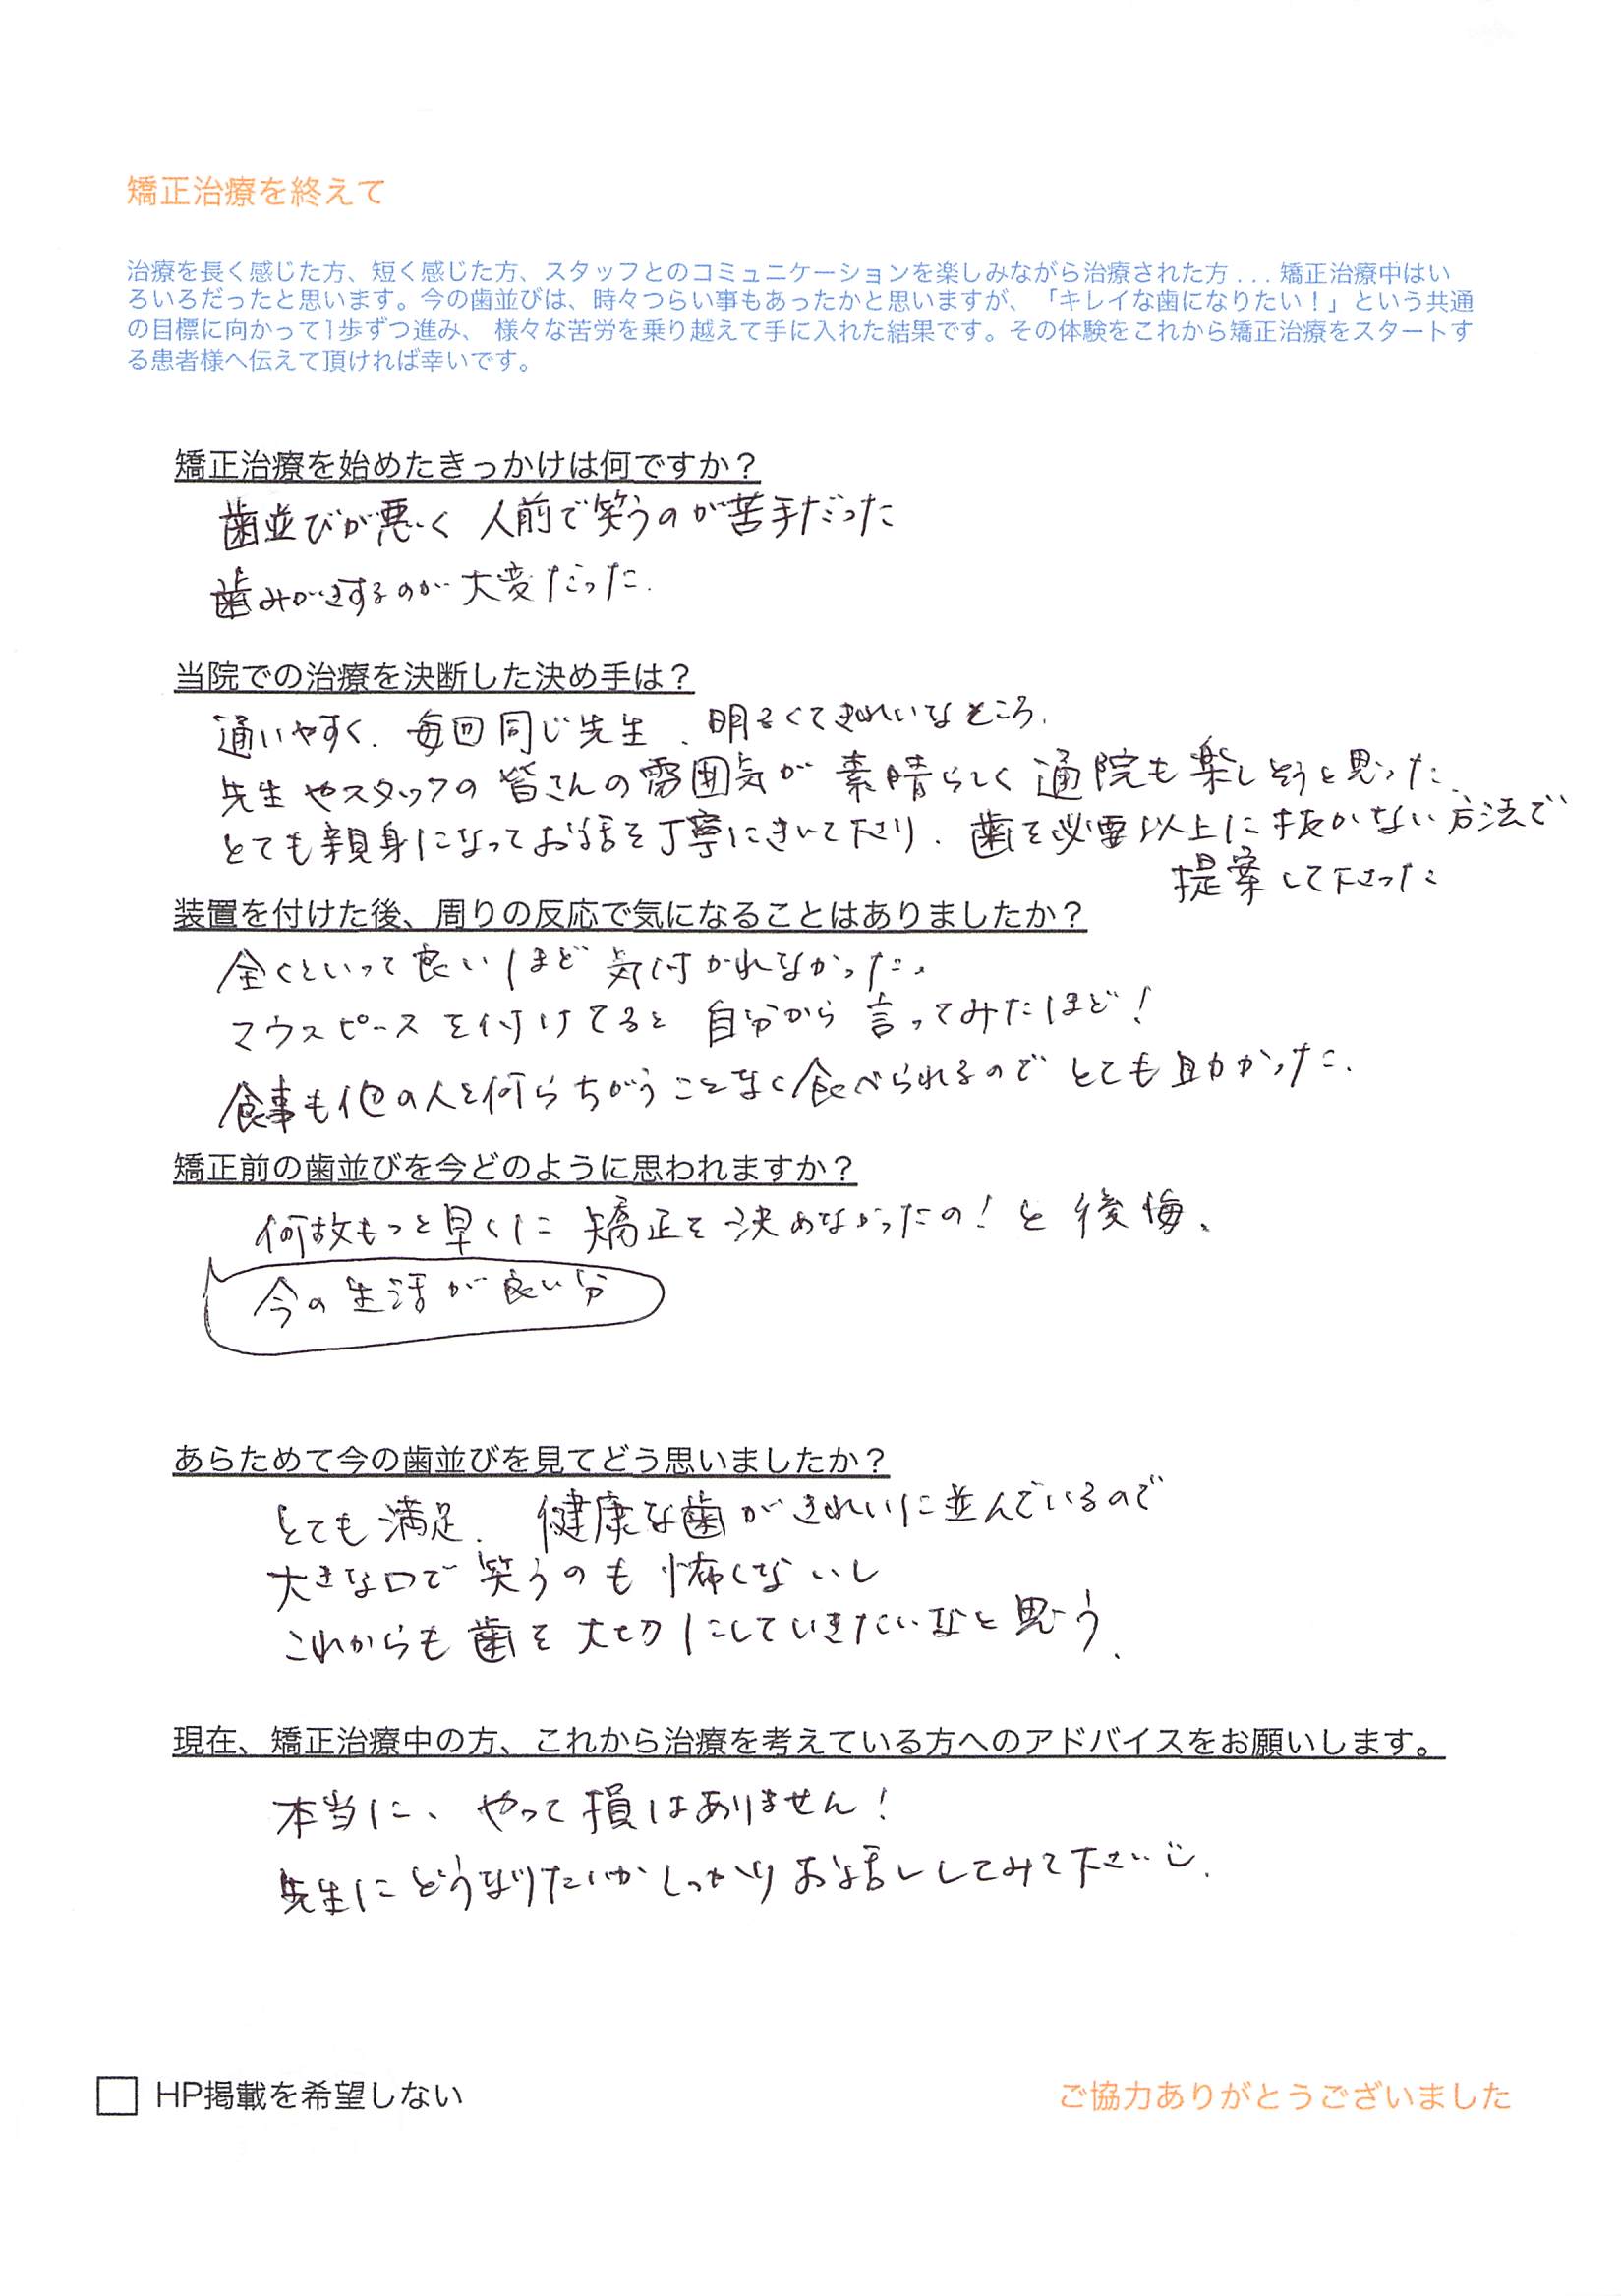 矯正治療を終えて
治療を長く感じた方、短く感じた方、スタッフとのコミュニケーションを楽しみながら治療された方 . . . 矯正治療中はい
ろいろだったと思います。今の歯並びは、時々つらい事もあったかと思いますが、「キレイな歯になりたい！」という共通
の目標に向かって1歩ずつ進み、 様々な苦労を乗り越えて手に入れた結果です。その体験をこれから矯正治療をスタートす
る患者様へ伝えて頂ければ幸いです。
矯正治療を始めたきっかけは何ですか？
歯並びが悪く 人前で笑うのが苦手だった
歯みがきするのが大変だった.
当院での治療を決断した決め手は？
通いやすく. 毎回同じ先生. 明るくてきれいなところ.
先生やスタッフの皆さんの雰囲気が素晴らしく通院も楽しそうと思った.
とても親身になってお話を丁寧にきいて下さり. 歯を必要以上に抜かない方法で
提案して下さった
装置を付けた後、周りの反応で気になることはありましたか？
全くといって良いほど気付かれなかった.
マウスピースを付けてると 自分から言ってみたほど!
食事も他の人と何らちがうことなく食べられるのでとても助かった.
矯正前の歯並びを今どのように思われますか？
何故もっと早くに矯正を決めなかったの! と後悔、
今の生活が良い分
あらためて今の歯並びを見てどう思いましたか？
とても満足. 健康な歯がきれいに並んでいるので
大きな口で笑うのも怖くないし
これからも歯を大切にしていきたいなと思う.
現在、矯正治療中の方、これから治療を考えている方へのアドバイスをお願いします。
本当に、やって損はありません!
先生にどうなりたいかしっかりお話ししてみて下さい.
HP掲載を希望しない
ご協力ありがとうございました